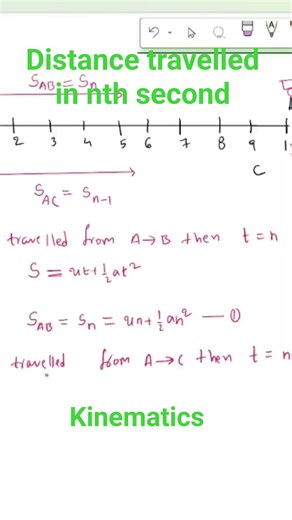 Distance travelled
S_AB = S_n
in nth second
2 3 4 5 6 7 8 9 1
C
S_AC = S_n-1
travelled from A→B then t = n
S = ut + ½at²
S_AB = S_n = un + ½an² — ①
travelled from A→C then t = n
Kinematics